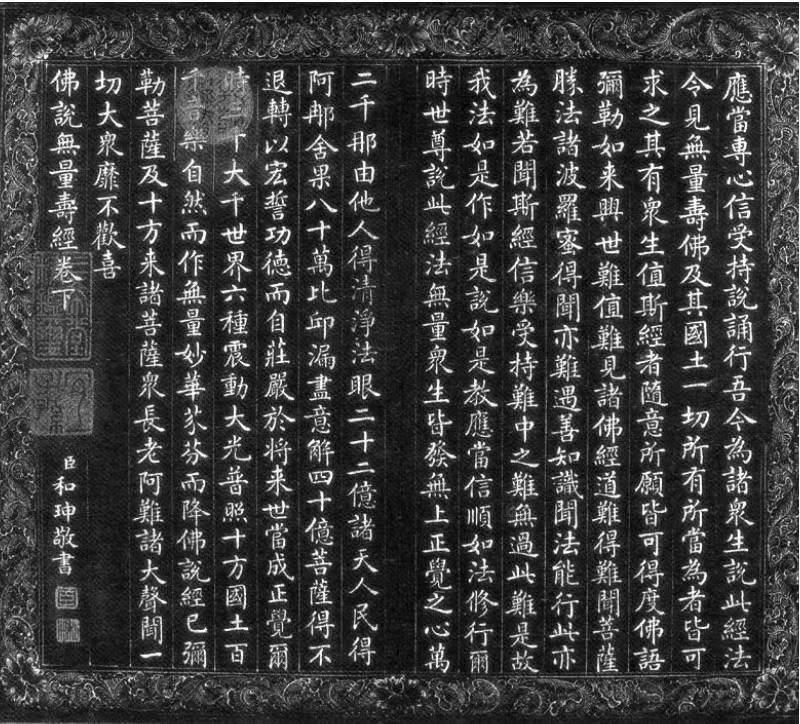 應當專心信受持說誦行吾今為諸衆生說此經法
令見無量壽佛及其國土一切所有所當為者皆可
求之其有衆生值斯經者隨意所願皆可得度佛語
彌勒如来興世難值難見諸佛經道難得難聞菩薩
勝法諸波羅蜜得聞亦難遇善知識聞法能行此亦
為難若聞斯經信樂受持難中之難無過此難是故
我法如是作如是說如是教應當信順如法修行爾
時世尊說此經法無量衆生皆發無上正覺之心萬
二千那由他人得清淨法眼二十二億諸天人民得
阿那舍果八十萬比邱漏盡意解四十億菩薩得不
退轉以宏誓功德而自莊嚴於将来世當成正覺爾
時三千大千世界六種震動大光普照十方國土百
千音樂自然而作無量妙華芬芬而降佛說經已彌
勒菩薩及十方来諸菩薩衆長老阿難諸大聲聞一
切大衆靡不歡喜
佛說無量壽經卷下
臣和珅敬書